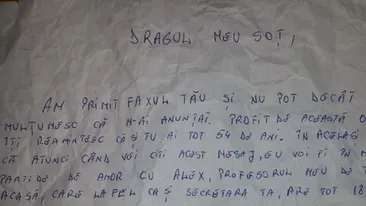 DRAGUL MEU SOȚ,
AM PRIMIT FAXUL TĂU ȘI NU POT DECÂT
MULȚUMESC CĂ M-AI ANUNȚAT. PROFIT DE ACEASTĂ O
ÎȚI REAMINTESC CĂ ȘI TU AI TOT 54 DE ANI. ÎN ACELAȘI
CĂ ATUNCI CÂND VEI CITI ACEST MESAJ, EU VOI FI ÎN M
PARTIDE DE AMOR CU ALEX, PROFESORUL MEU DE T
ACASĂ, CARE LA FEL CA ȘI SECRETARA TA, ARE TOT 18